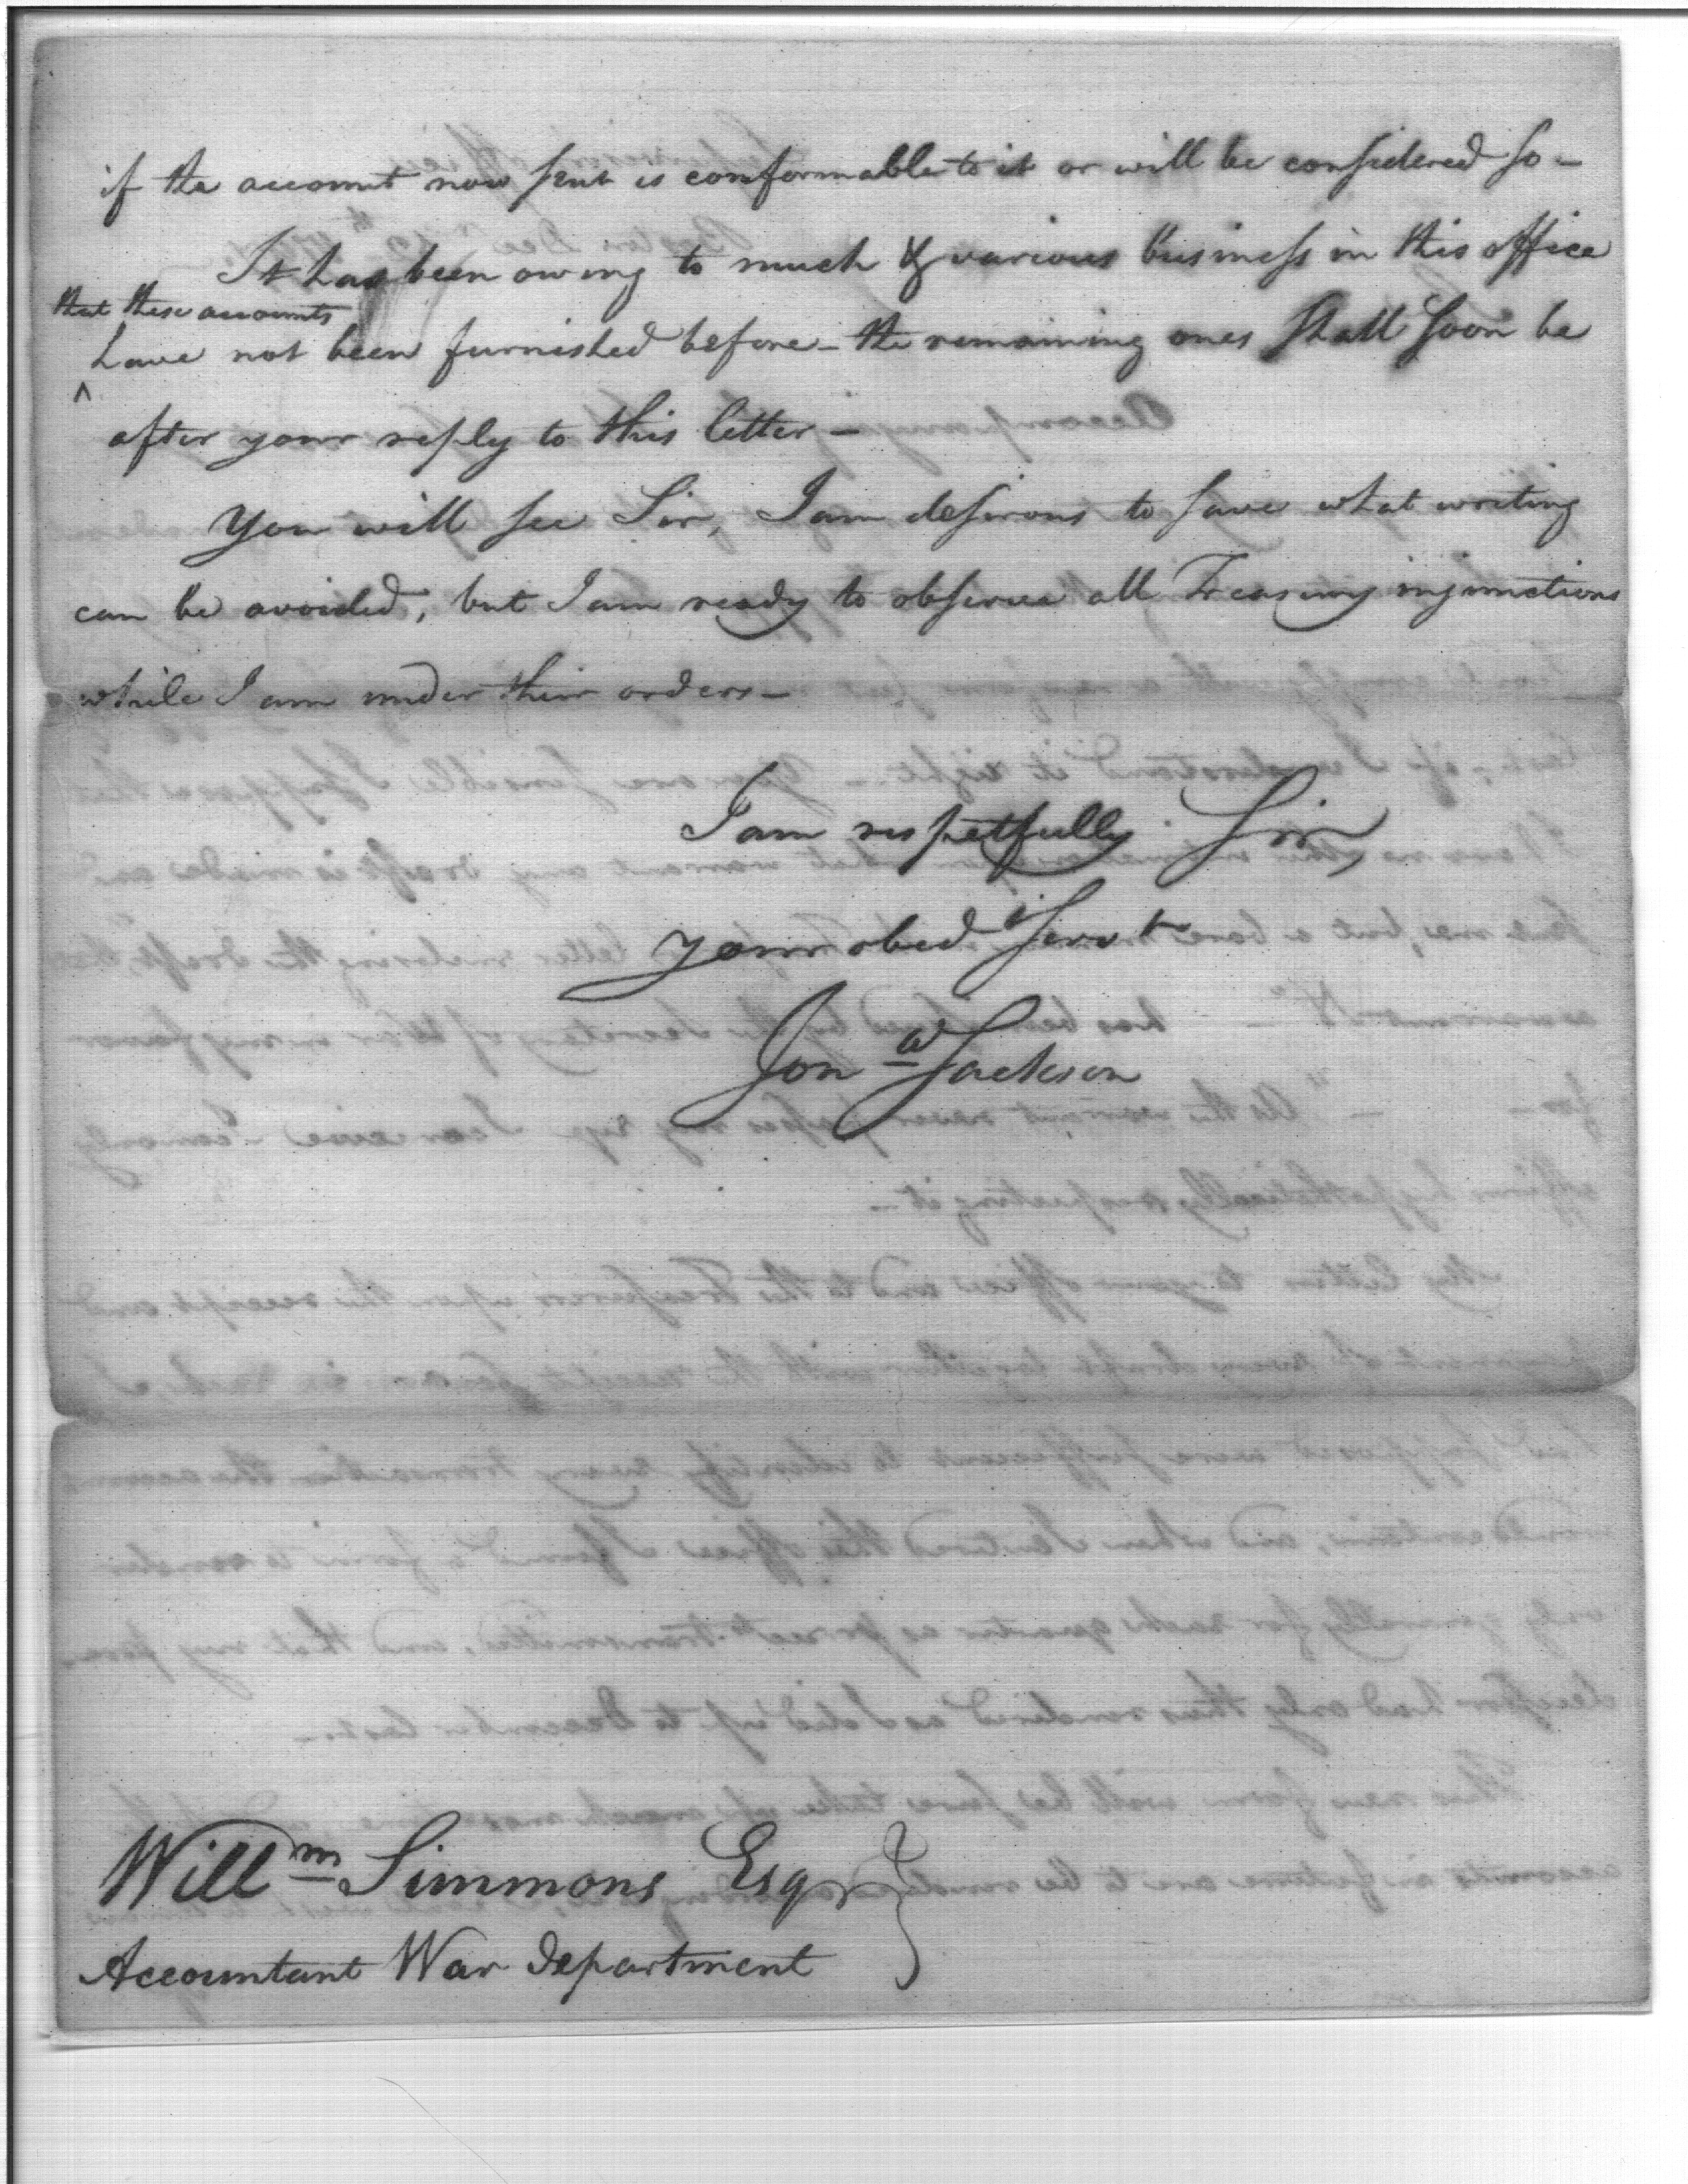 if the account now sent is conformable to it or will be considered so –
It has been owing to much & various business in this office
that these accounts
^ have not been furnished before – the remaining ones shall soon be
after your reply to this letter –
You will see Sir, I am desirous to save what writing
can be avoided, but I am ready to observe all Treasury injunctions
while I am under their orders –
I am respetfully Sir,
your obed Servt
Jona Jackson
Willm Simmons Esqr }
Accountant War department